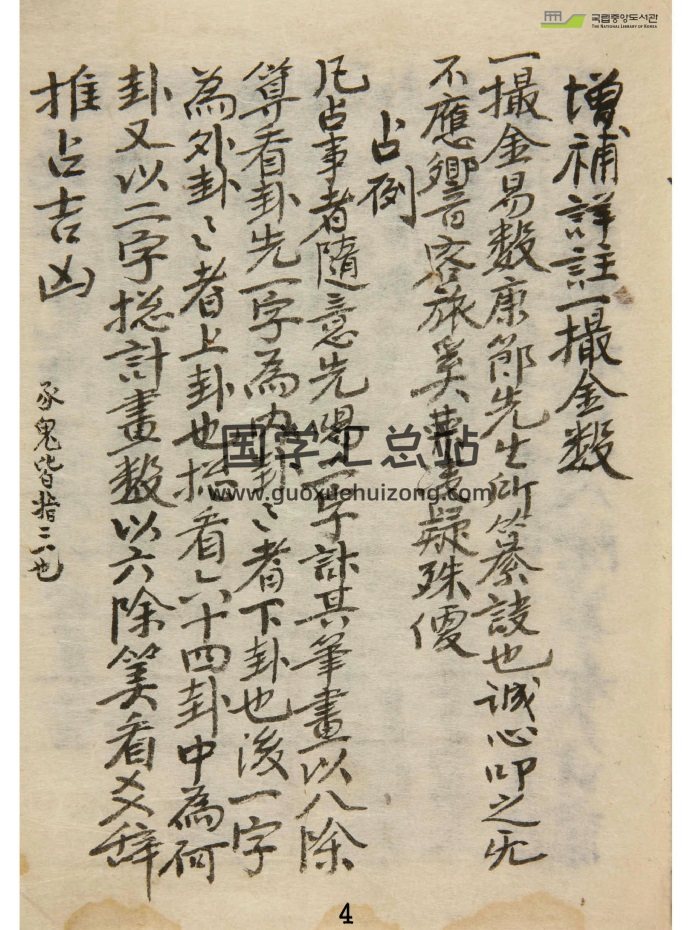 국립중앙도서관
THE NATIONAL LIBRARY OF KOREA
增補詳註一撮金数
一撮金易数康節先生所纂設也誠心叩之无
不應響音客旅奚費決疑殊便
占例
凡占事者隨意先寫二字計其筆畫以八除
算看卦先一字為內卦〻者下卦也後一字
為外卦〻者上卦也揔看六十四卦中為何
卦又以二字揔計畫數以六除筭看爻辞
推占吉凶
豕鬼皆指二也
国学汇总站
www.guoxuehuizong.com
4